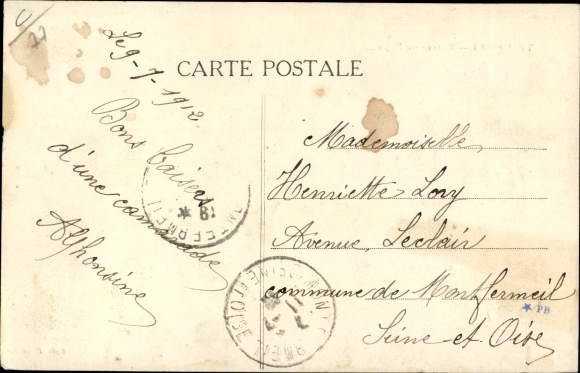 CARTE POSTALE
Le 9-7-1912.
Bons Baisers
d'une camarade
Alphonsine
Mademoiselle
Henriette Lory
Avenue Leclair
commune de Montfermeil
Seine-et-Oise
PB
MONTFERMEIL
SEINE-ET-OISE